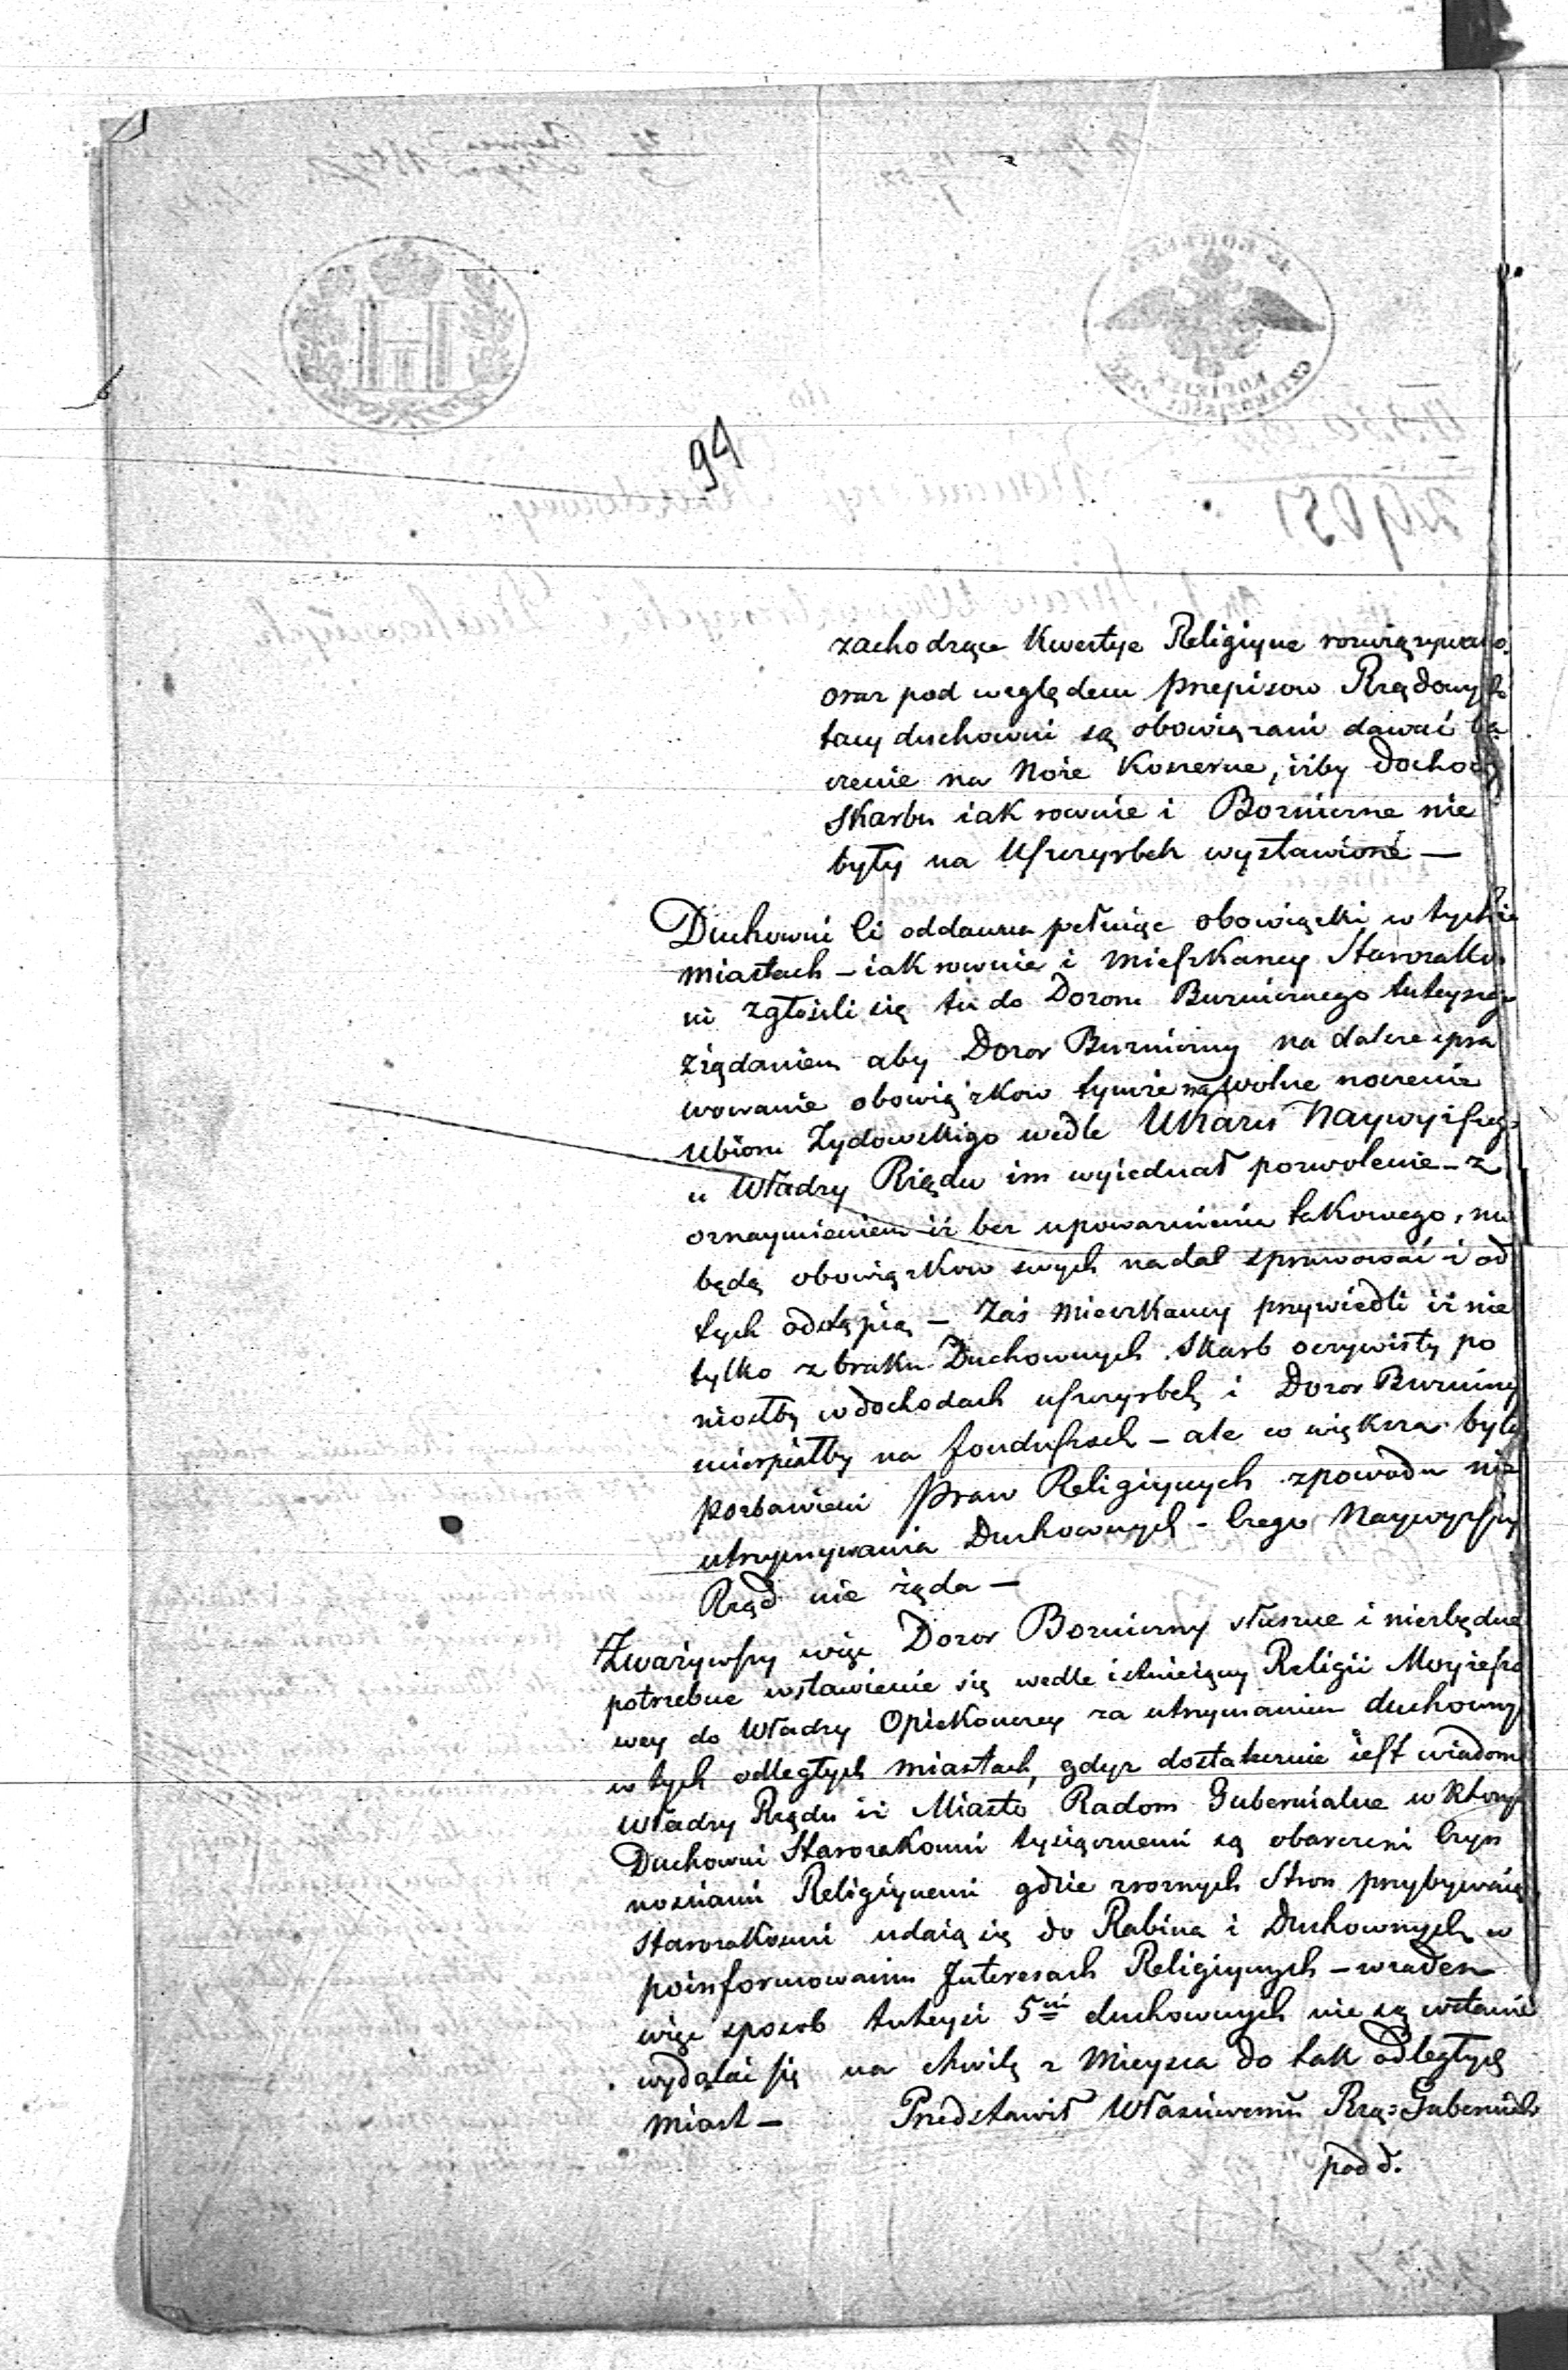 94
zachodzące Kwestye Religiyne rozwiązywano.
oraz pod względem przepisow Rządowych
tacy duchowni są obowiązani dawać ba
czenie na Noże Koszerne, iżby dochody
Skarbu iak rownie i Bozniczne nie
były na Uszczerbek wystawione —
Duchowni Ci oddawna pełniąc obowiązki w tychże
miastach – iak rownie i Mieszkancy Starozakon
ni zgłosili się tu do Dozoru Buznicznego tuteyszego
z żądaniem aby Dozor Buzniczny na dalsze spra
wowanie obowiązkow tymże na wolne noszenie
Ubioru Żydowskigo wedle Ukazu Naywyższego
u Władzy Rządu im wyiednał pozwolenie – z
oznaymieniem iż bez upoważnienia takowego, nie
będą obowiązkow swych nadal sprawować i od
tych odstąpią – Zaś Mieszkancy przywiedli iż nie
tylko z braku Duchownych Skarb oczywisty po
niosłby w dochodach uszczerbek i Dozor Buzniczny
ucierpiałby na funduszach – ale co większa byliby
pozbawieni Praw Religiynych z powodu nie
utrzymywania Duchownych – Czego Naywyższy
Rząd nie żąda —
Zważywszy więc Dozor Bozniczny słuszne i niezbędne
potrzebne wstawienie się wedle istnieiącey Religii Moyżeszo
wey do Władzy Opiekonczey za utrzymaniem duchownych
w tych odległych miastach, gdyż dostatecznie iest wiadomo
Władzy Rządu iż Miasto Radom Gubernialne w ktorym
Duchowni Starozakonni tysiącznemi są obarczeni Czyn
nościami Religiynemi gdzie z roznych Stron przybywaią
Starozakonni udaią się do Rabina i Duchownych w
poinformowaniu Interesach Religiynych – w żaden
więc sposob tuteysi 5ciu duchownych nie są w stanie
wydalać się na chwilę z Mieysca do tak odległych
Miast — Przedstawił Właściwemu Rzą: Guberniale
pod d.